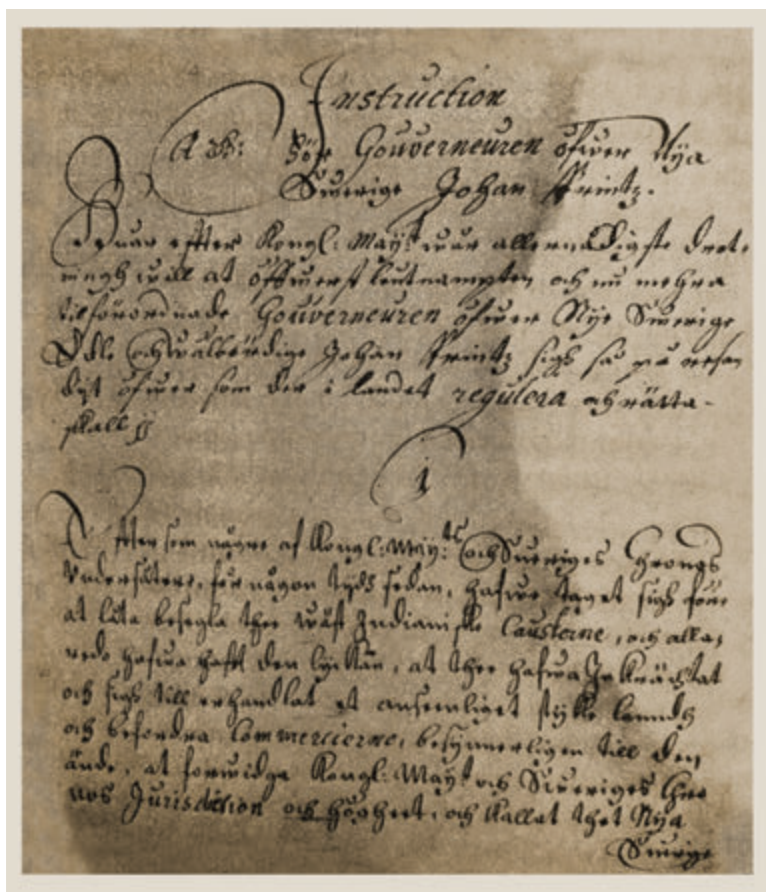 Instruction
för Gouverneuren öfwer Nya
Swerige Johan Printz.
effter Kongl: Maytt wår allernådigste Drot-
ningh will at öffwerst leutnampten och nu mehra
tilförordnade Gouverneuren öfwer Nye Swerige
Edle och Wälbördige Johan Printz sigh så på resan
dijt öfwer som der i landet regulera och rätta
skall
1
Effter som någre af Kongl: Maytts och Sweriges Chronos
Undersåtare, för någon tydh sedan, hafwe taget sigh före
at låta besegla the Wäst Indianiske Custerne, och alla,
redo hafwa hafft den lyckan, at the hafwa
och sigh till erhandlat et anseenliget stycke landh
och befordra Commercierne, besynnerligen till den
ände, at forwidga Kongl: Maytt och Sweriges Chro
nos Jurisdiction och Höghet, och kallat thet Nya
Swerige